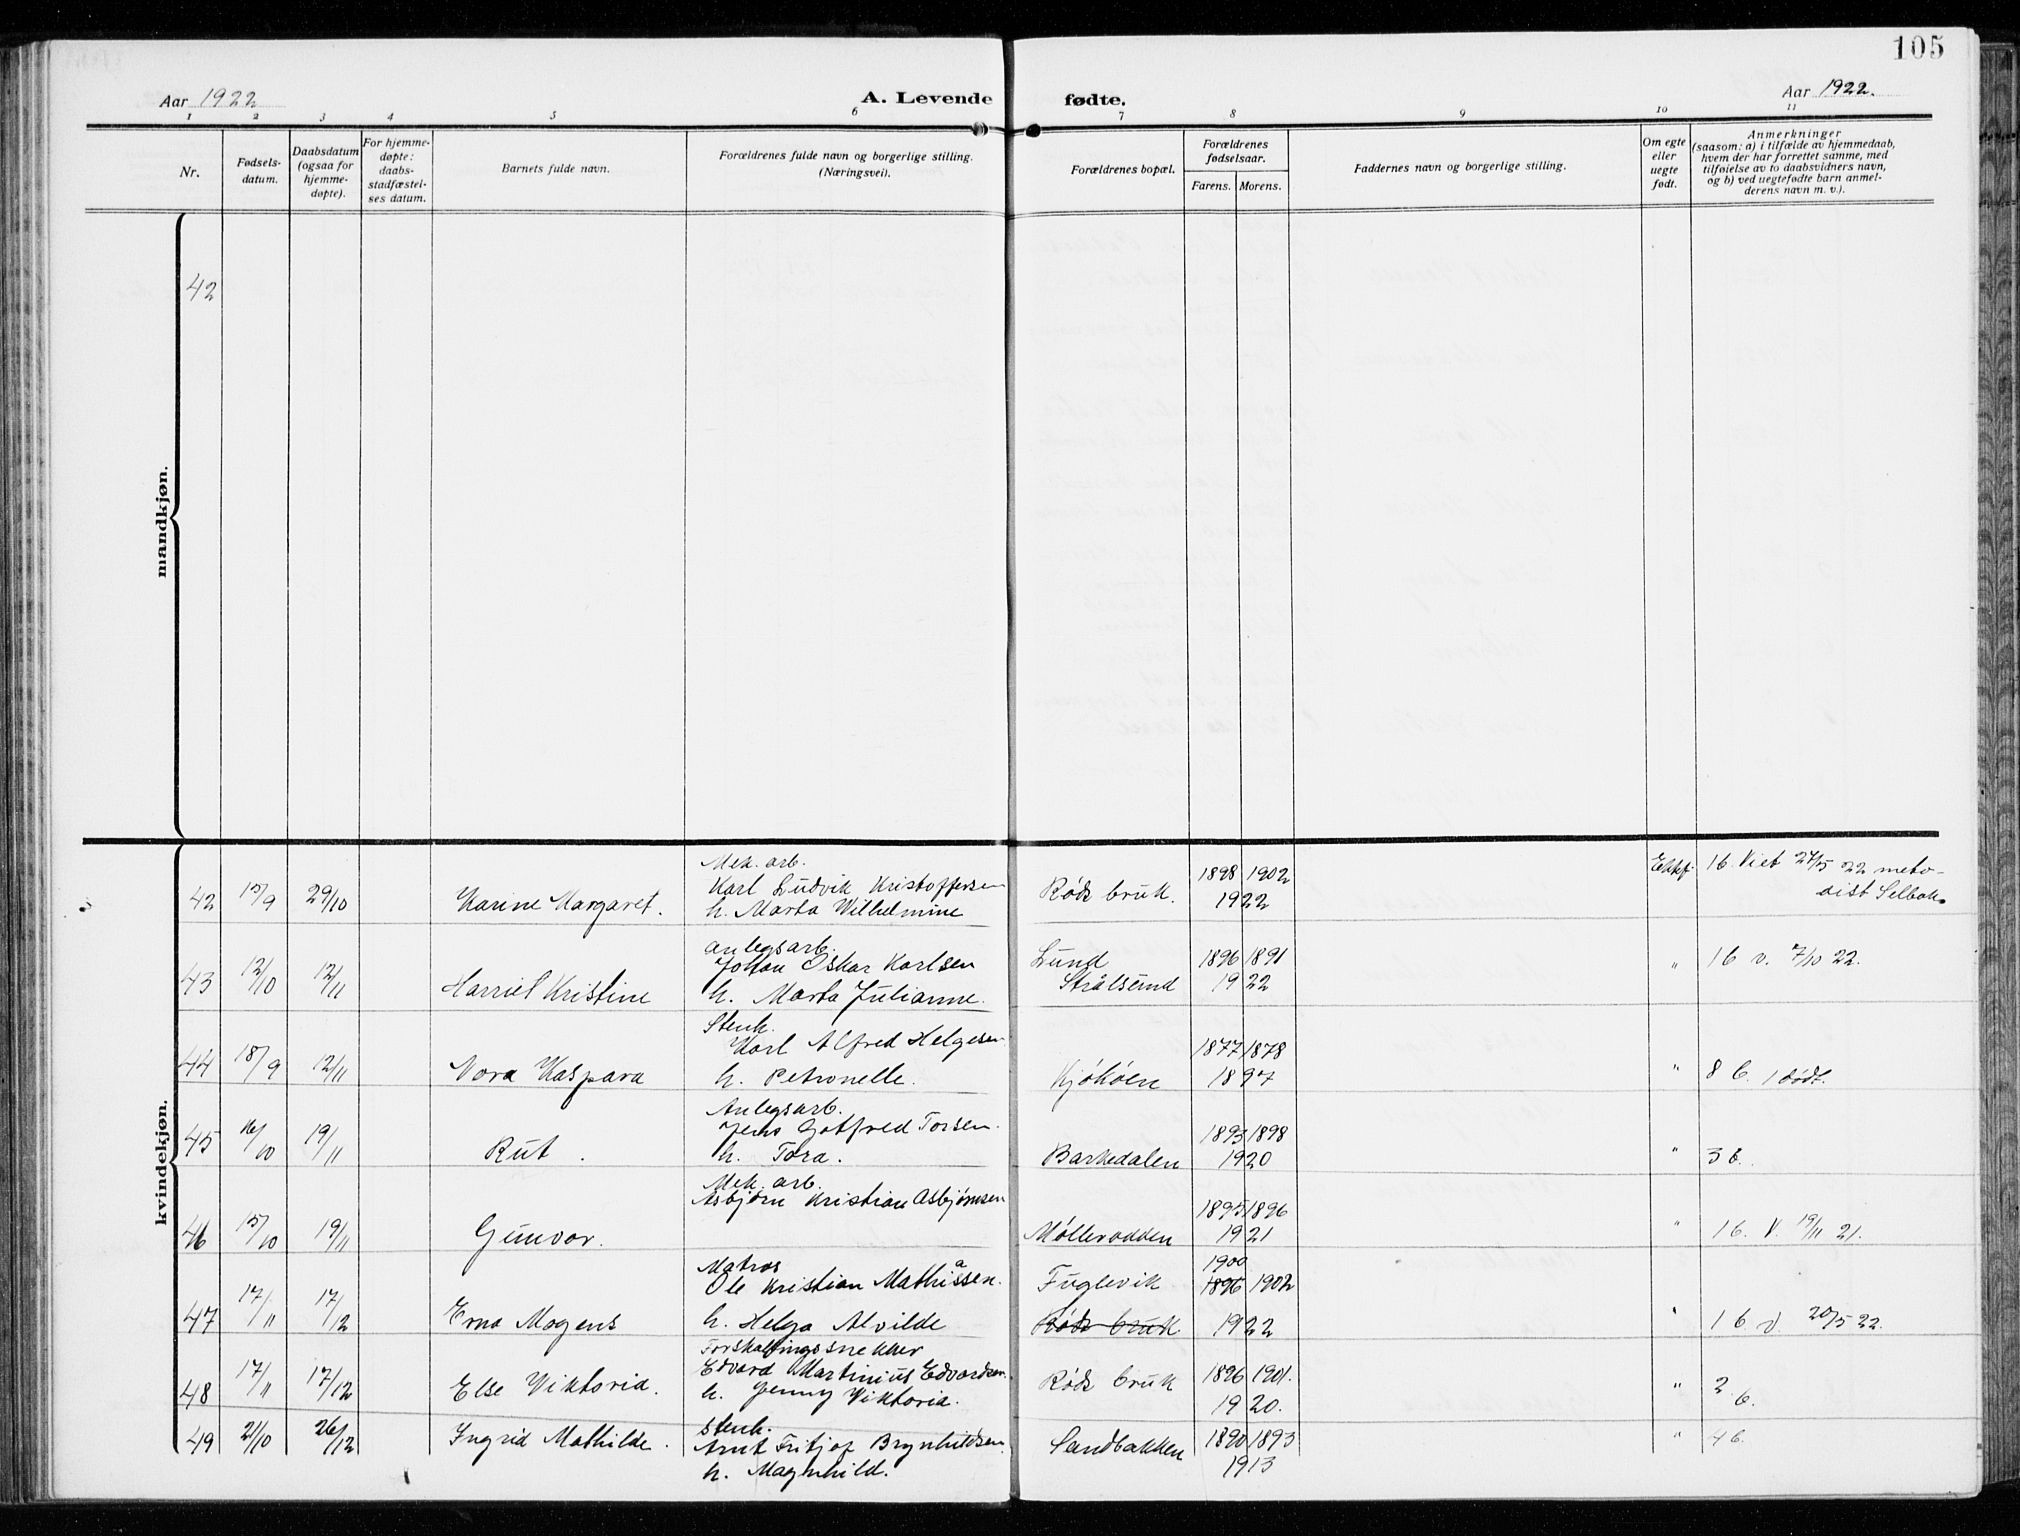 105
Aar 1922
A. Levende fødte.
Aar 1922.
1 2 3 4 5 6 7 8 9 10 11
Nr.
Fødsels-
datum.
Daabsdatum
(ogsaa for
hjemme-
døpte).
For hjemme-
døpte:
daabs-
stadfæstel-
ses datum.
Barnets fulde navn.
Forældrenes fulde navn og borgerlige stilling.
(Næringsvei).
Forældrenes bopæl.
Forældrenes
fødselsaar.
Farens. Morens.
Faddernes navn og borgerlige stilling.
Om egte
eller
uegte
født.
Anmerkninger
(saasom: a) i tilfælde av hjemmedaab,
hvem der har forrettet samme, med
tilføielse av to daabsvidners navn,
og b) ved uegtefødte barn anmel-
derens navn m. v.).
mandkjøn.
42
kvindekjøn.
Mek. arb.
42 15/9 29/10 Karine Margaret. Karl Ludvik Kristoffersen Røds bruk. 1898 1902 Ektf. 1 b. Viet 27/5 22 meto-
h. Marta Wilhelmine 1922 dist Selbak.
Anlegsarb.
43 12/10 12/11 Harriet Kristine Johan Oskar Karlsen Lund 1896 1891 " 1 b v. 7/10 22.
h. Marta Julianne. Stålsund 1922
Stenh.
Karl Alfred Helgesen 1877 1878
44 18/9 12/11 Nora Kaspara h. Petronelle. Kjøkøen 1897 " 8 b. 1 dødt.
Anlegsarb.
45 16/10 19/11 Rut. Jens Gotfred Torsen. 1893 1898
h. Tora. Barkedalen 1920 " 3 b.
Mek. arb.
Asbjørn Kristian Asbjørnsen 1895 1896
46 15/10 19/11 Gunvor. Møllerodden 1921 " 1 b. v. 19/11 21.
Matros 1900
a
Ole Kristian Mathissen. Fuglevik 1896 1902
47 17/11 17/12 Erna Mogens h. Helga Alvilde Røds bruk 1922 " 1 b v. 20/5 22.
Forskallingssnekker
Edvard Martinius Edvardsen Røds bruk 1896 1901.
48 17/11 17/12 Else Viktoria. h. Jenny Viktoria. 1920. " 2 b.
Stenh.
49 21/10 26/12 Ingrid Mathilde. Arnt Fritjof Brynhildsen Sandbakken 1890 1893 " 4 b.
h. Magnhild. 1913